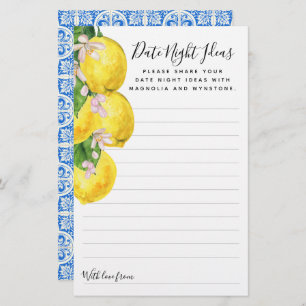 Date Night Ideas
PLEASE SHARE YOUR
DATE NIGHT IDEAS WITH
MAGNOLIA AND WYNSTONE.
With love from